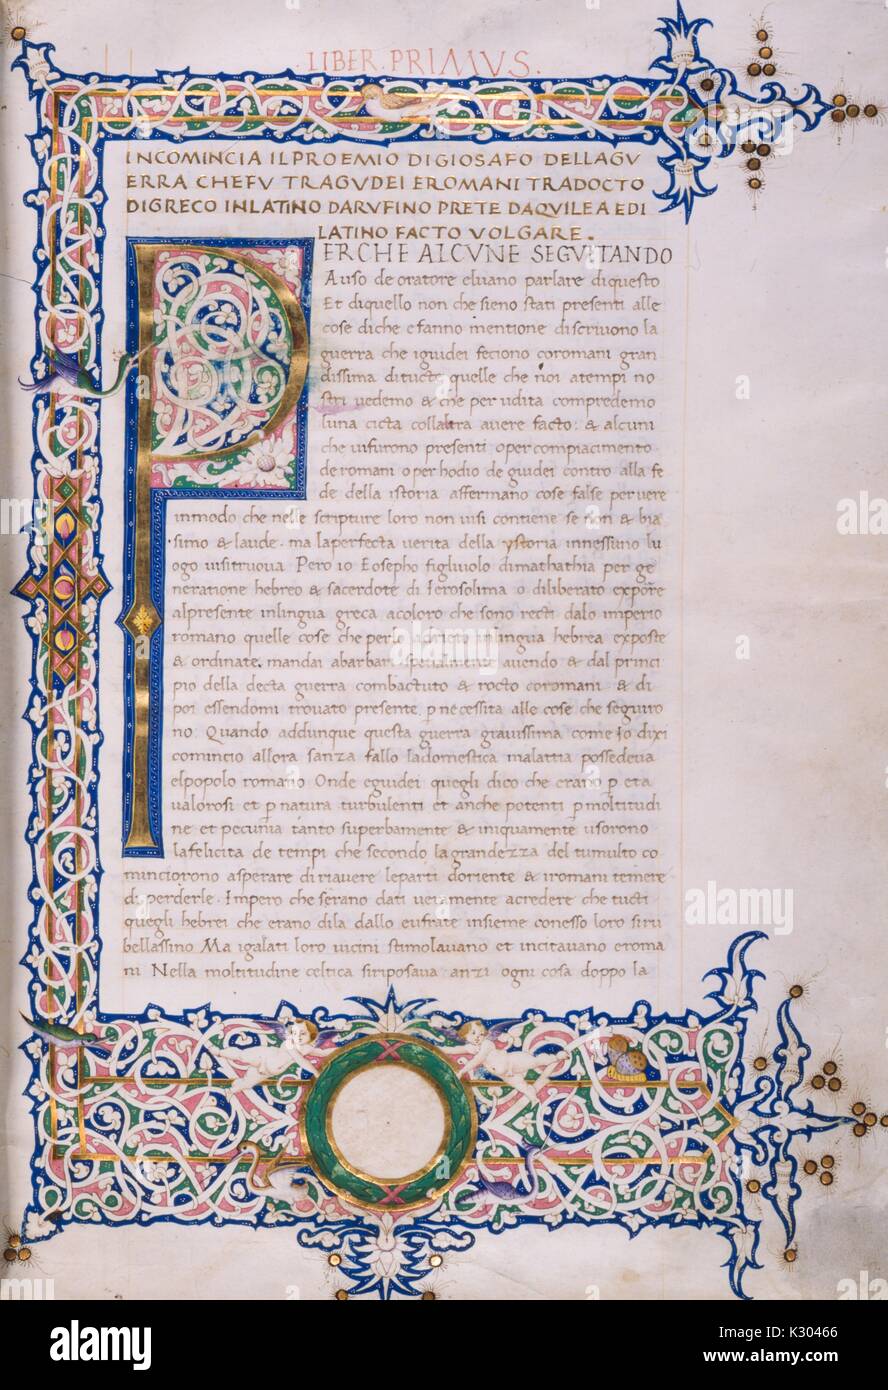 LIBER PRIMVS.
INCOMINCIA IL PROEMIO DI GIOSAFO DELLA GV
ERRA CHE FV TRAGVDEI E ROMANI TRADOCTO
DI GRECO IN LATINO DA RVFINO PRETE DAQVILEA E DI
LATINO FACTO VOLGARE.
PERCHE ALCVNE SEGVITANDO
Auso de oratore
parlare diquesto
Et diquello non che sieno stati presenti alle
cose diche efanno mentione discriuono la
guerra che iguidei feciono coromani gran
dissima di tucte quelle che noi atempi no
stri uedemo & che per udita compredemo
luna cicta collaltra auere facto: & alcuni
che uifurono presenti o per compiacimento
de romani o per hodio de guidei contro alla fe
de della istoria affermano cose false per uere
inmodo che nelle scripture loro non uisi contiene se non & bia
simo & laude. ma laperfecta uerita della ystoria innessuno lu
ogo uisitruoua Pero io Eosepho figliuolo dimathathia per ge
neratione hebreo & sacerdote di Ierosolima o diliberato expore
alpresente inlingua greca acoloro che sono recti dalo imperio
romano quelle cose che
inlingua hebrea exposte
& ordinate. mandai abarbari spetialmente auendo & dal princi
pio della decta guerra combactuto & rocto coromani & di
poi essendomi trouato presente p necessita alle cose che seguiro
no. Quando addunque questa guerra grauissima come Io dixi
comincio allora sanza fallo ladomestica malattia possedeua
elpopolo romano Onde eguidei quegli dico che erano p eta
ualorosi et p natura turbulenti et anche potenti p moltitudi
ne et pecunia tanto superbamente & iniquamente usorono
lafelicita de tempi che secondo lagrandezza del tumulto co
minciorono asperare di riauere leparti doriente & iromani temere
di perderle. Impero che serano dati ueramente accredere che tucti
quegli hebrei che erano dila dallo eufrate insieme conesso loro siri
bellassino Ma igalati loro uicini stimolauano et incitauano eroma
ni Nella moltitudine celtica siriposaua anzi ogni cosa doppo la
alamy
a
alamy
Image ID: K30466
www.alamy.com